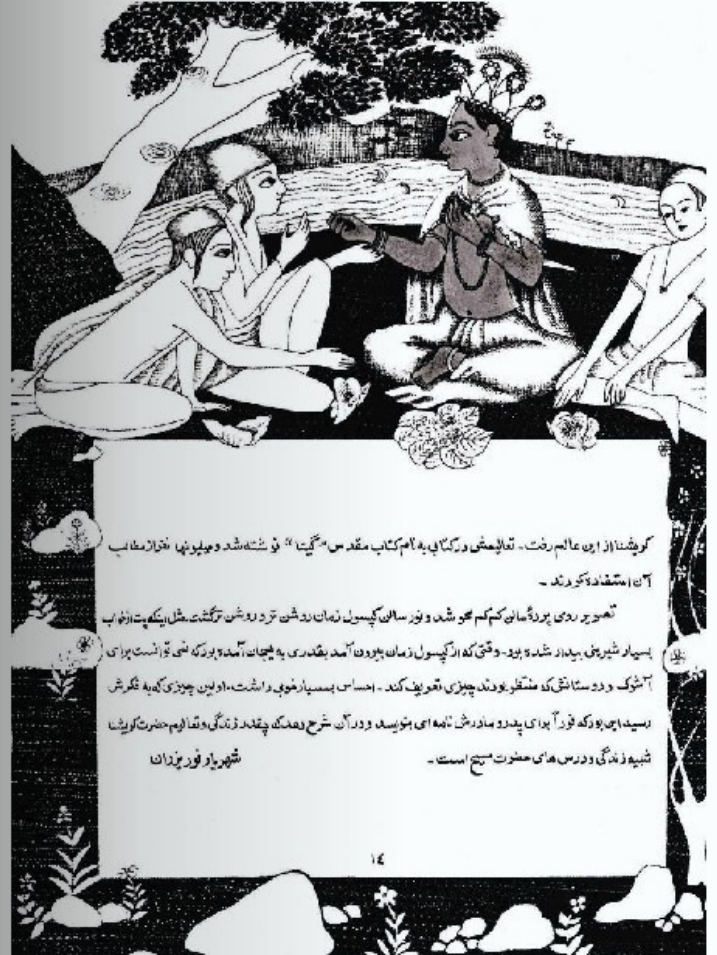 کریشنا از این عالم رفت. تعالیمش در کتابی به نام کتاب مقدس "گیتا" نوشته شد و میلیونها نفر از مطالب
آن استفاده کردند.
تصویر روی پردهٔ سالن کم کم محو شد و نور سالن کپسول زمان روشن تر و روشن تر گشت. مثل اینکه پت از خواب
بسیار شیرینی بیدار شده بود. وقتی که از کپسول زمان بیرون آمد بقدری به هیجان آمده بود که نمی توانست برای
آشوک و دوستانش که منتظر بودند چیزی تعریف کند. احساس بسیار خوبی داشت، اولین چیزی که به فکرش
رسید این بود که فوراً برای پدر و مادرش نامه ای بنویسد و در آن شرح دهد که چقدر زندگی و تعالیم حضرت کریشنا
شبیه زندگی و درس های حضرت مسیح است.
شهریار نور یزدان
١٤